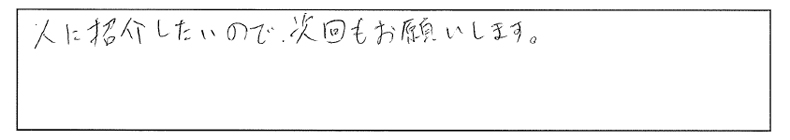 人に紹介したいので、次回もお願いします。